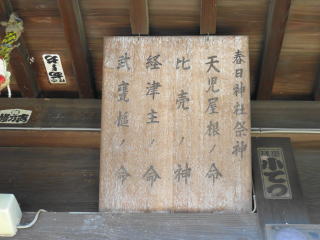 春日神社祭神
天児屋根ノ命
比売ノ神
経津主ノ命
武甕槌ノ命